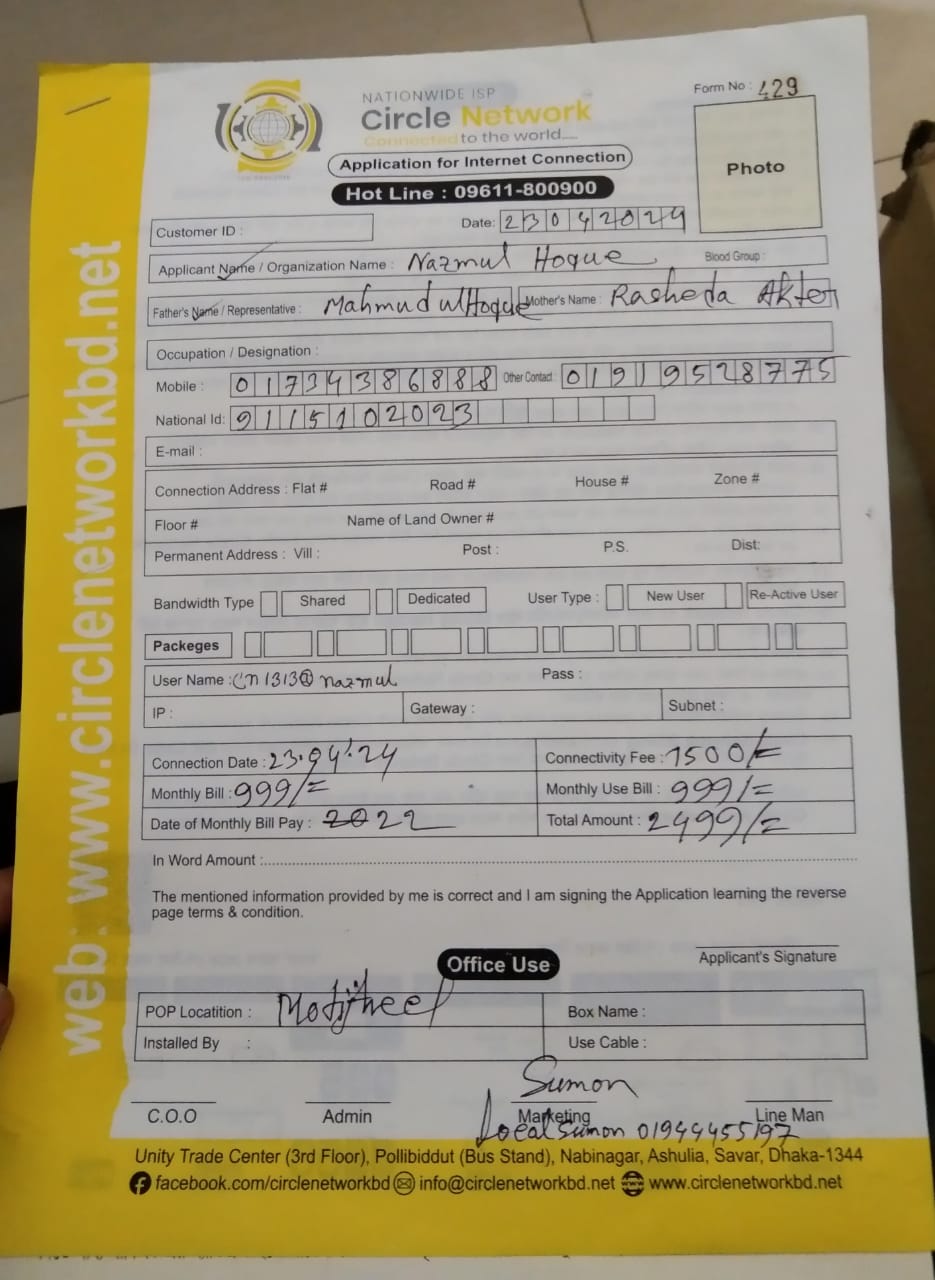 NATIONWIDE ISP
Circle Network
Connected to the world.....
Application for Internet Connection
Hot Line : 09611-800900
Form No : 429
Photo
Customer ID :
Date: 23042024
Applicant Name / Organization Name : Nazmul Hoque Blood Group :
Father's Name / Representative : Mahmudul Hoque Mother's Name : Rasheda Akter
Occupation / Designation :
Mobile : 01734386888 Other Contact: 01919528775
National Id: 9115102023
E-mail :
Connection Address : Flat # Road # House # Zone #
Floor # Name of Land Owner #
Permanent Address : Vill : Post : P.S. Dist:
Bandwidth Type Shared Dedicated User Type : New User Re-Active User
Packeges
User Name : CN1313@nazmul Pass :
IP : Gateway : Subnet :
Connection Date : 23.04.24 Connectivity Fee : 1500/=
Monthly Bill : 999/= Monthly Use Bill : 999/=
Date of Monthly Bill Pay : 2022 Total Amount : 2499/=
In Word Amount :
The mentioned information provided by me is correct and I am signing the Application learning the reverse
page terms & condition.
Applicant's Signature
Office Use
POP Locatition : Motijheel Box Name :
Installed By : Use Cable :
Sumon
C.O.O Admin Marketing Line Man
Local Sumon 01944455197
Unity Trade Center (3rd Floor), Pollibiddut (Bus Stand), Nabinagar, Ashulia, Savar, Dhaka-1344
facebook.com/circlenetworkbd info@circlenetworkbd.net www.circlenetworkbd.net
web: www.circlenetworkbd.net